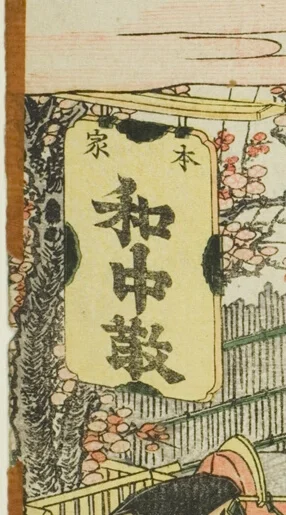 本家
和中散